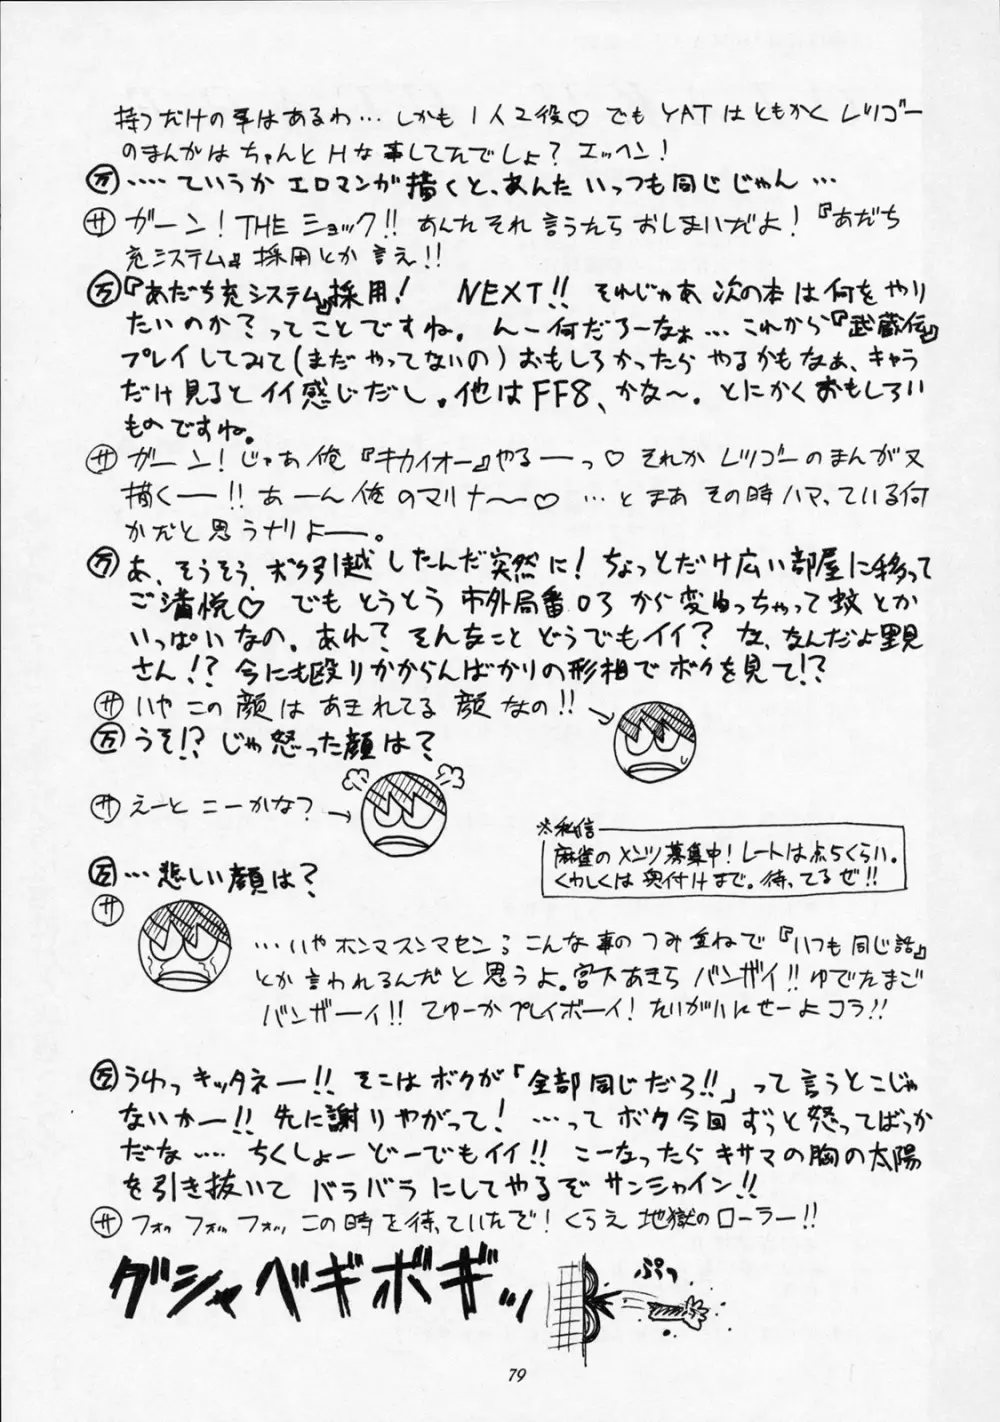 持つだけの事はあるわ…しかも1人2役♡ でもYATはともかくレツゴー
のまんがはちゃんとHな事してたでしょ?エッヘン!
万 ‥‥ていうかエロマンガ描くと、あんたいっつも同じじゃん…
サ ガーン!THEショック!!あんたそれ言うたらおしまいだよ!『あだち
充システム』採用とか言え!!
万 『あだち充システム』採用! NEXT!! それじゃあ次の本は何をやり
たいのか?ってことですね。んー何だろーなぁ…これから『武蔵伝』
プレイしてみて(まだやってないの)おもしろかったらやるかもなぁ、キャラ
だけ見るとイイ感じだし。他はFF8、かな〜。とにかくおもしろい
ものですね。
サ ガーン!じゃあ俺『キカイオー』やるーっ♡ それかレツゴーのまんが又
描くー!!あーん俺のマリナ〜♡ …とまあその時ハマっている何
かだと思うナリよー。
万 あ、そうそう、ボク引越したんだ突然に!ちょっとだけ広い部屋に移って
ご満悦♡ でもとうとう市外局番03から変わっちゃって蚊とか
いっぱいなの。あれ?そんなことどうでもイイ?な、なんだよ里見
さん!?今にも殴りかからんばかりの形相でボクを見て!?
サ いやこの顔はあきれてる顔なの!!
万 うそ!?じゃ怒った顔は?
サ えーとこーかな?
※私信
麻雀のメンツ募集中!レートは点5くらい。
くわしくは奥付けまで。待ってるぜ!!
万 …悲しい顔は?
サ
…いやホンマスンマセン。こんな事のつみ重ねで『いつも同じ話』
とか言われるんだと思うよ。宮下あきらバンザイ!!ゆでたまご
バンザーイ!!てゆーかプレイボーイ!たいがいにせーよコラ!!
万 うわっキッタネー!!そこはボクが「全部同じだろ!!」って言うとこじゃ
ないかー!!先に謝りやがって!…ってボク今回ずっと怒ってばっか
だな‥‥ちくしょーどーでもイイ!!こーなったらキサマの胸の太陽
を引き抜いてバラバラにしてやるぞサンシャイン!!
サ フォッフォッフォッ、この時を待っていたぞ!くらえ地獄のローラー!!
グシャベギボギッ
ぷっ
79